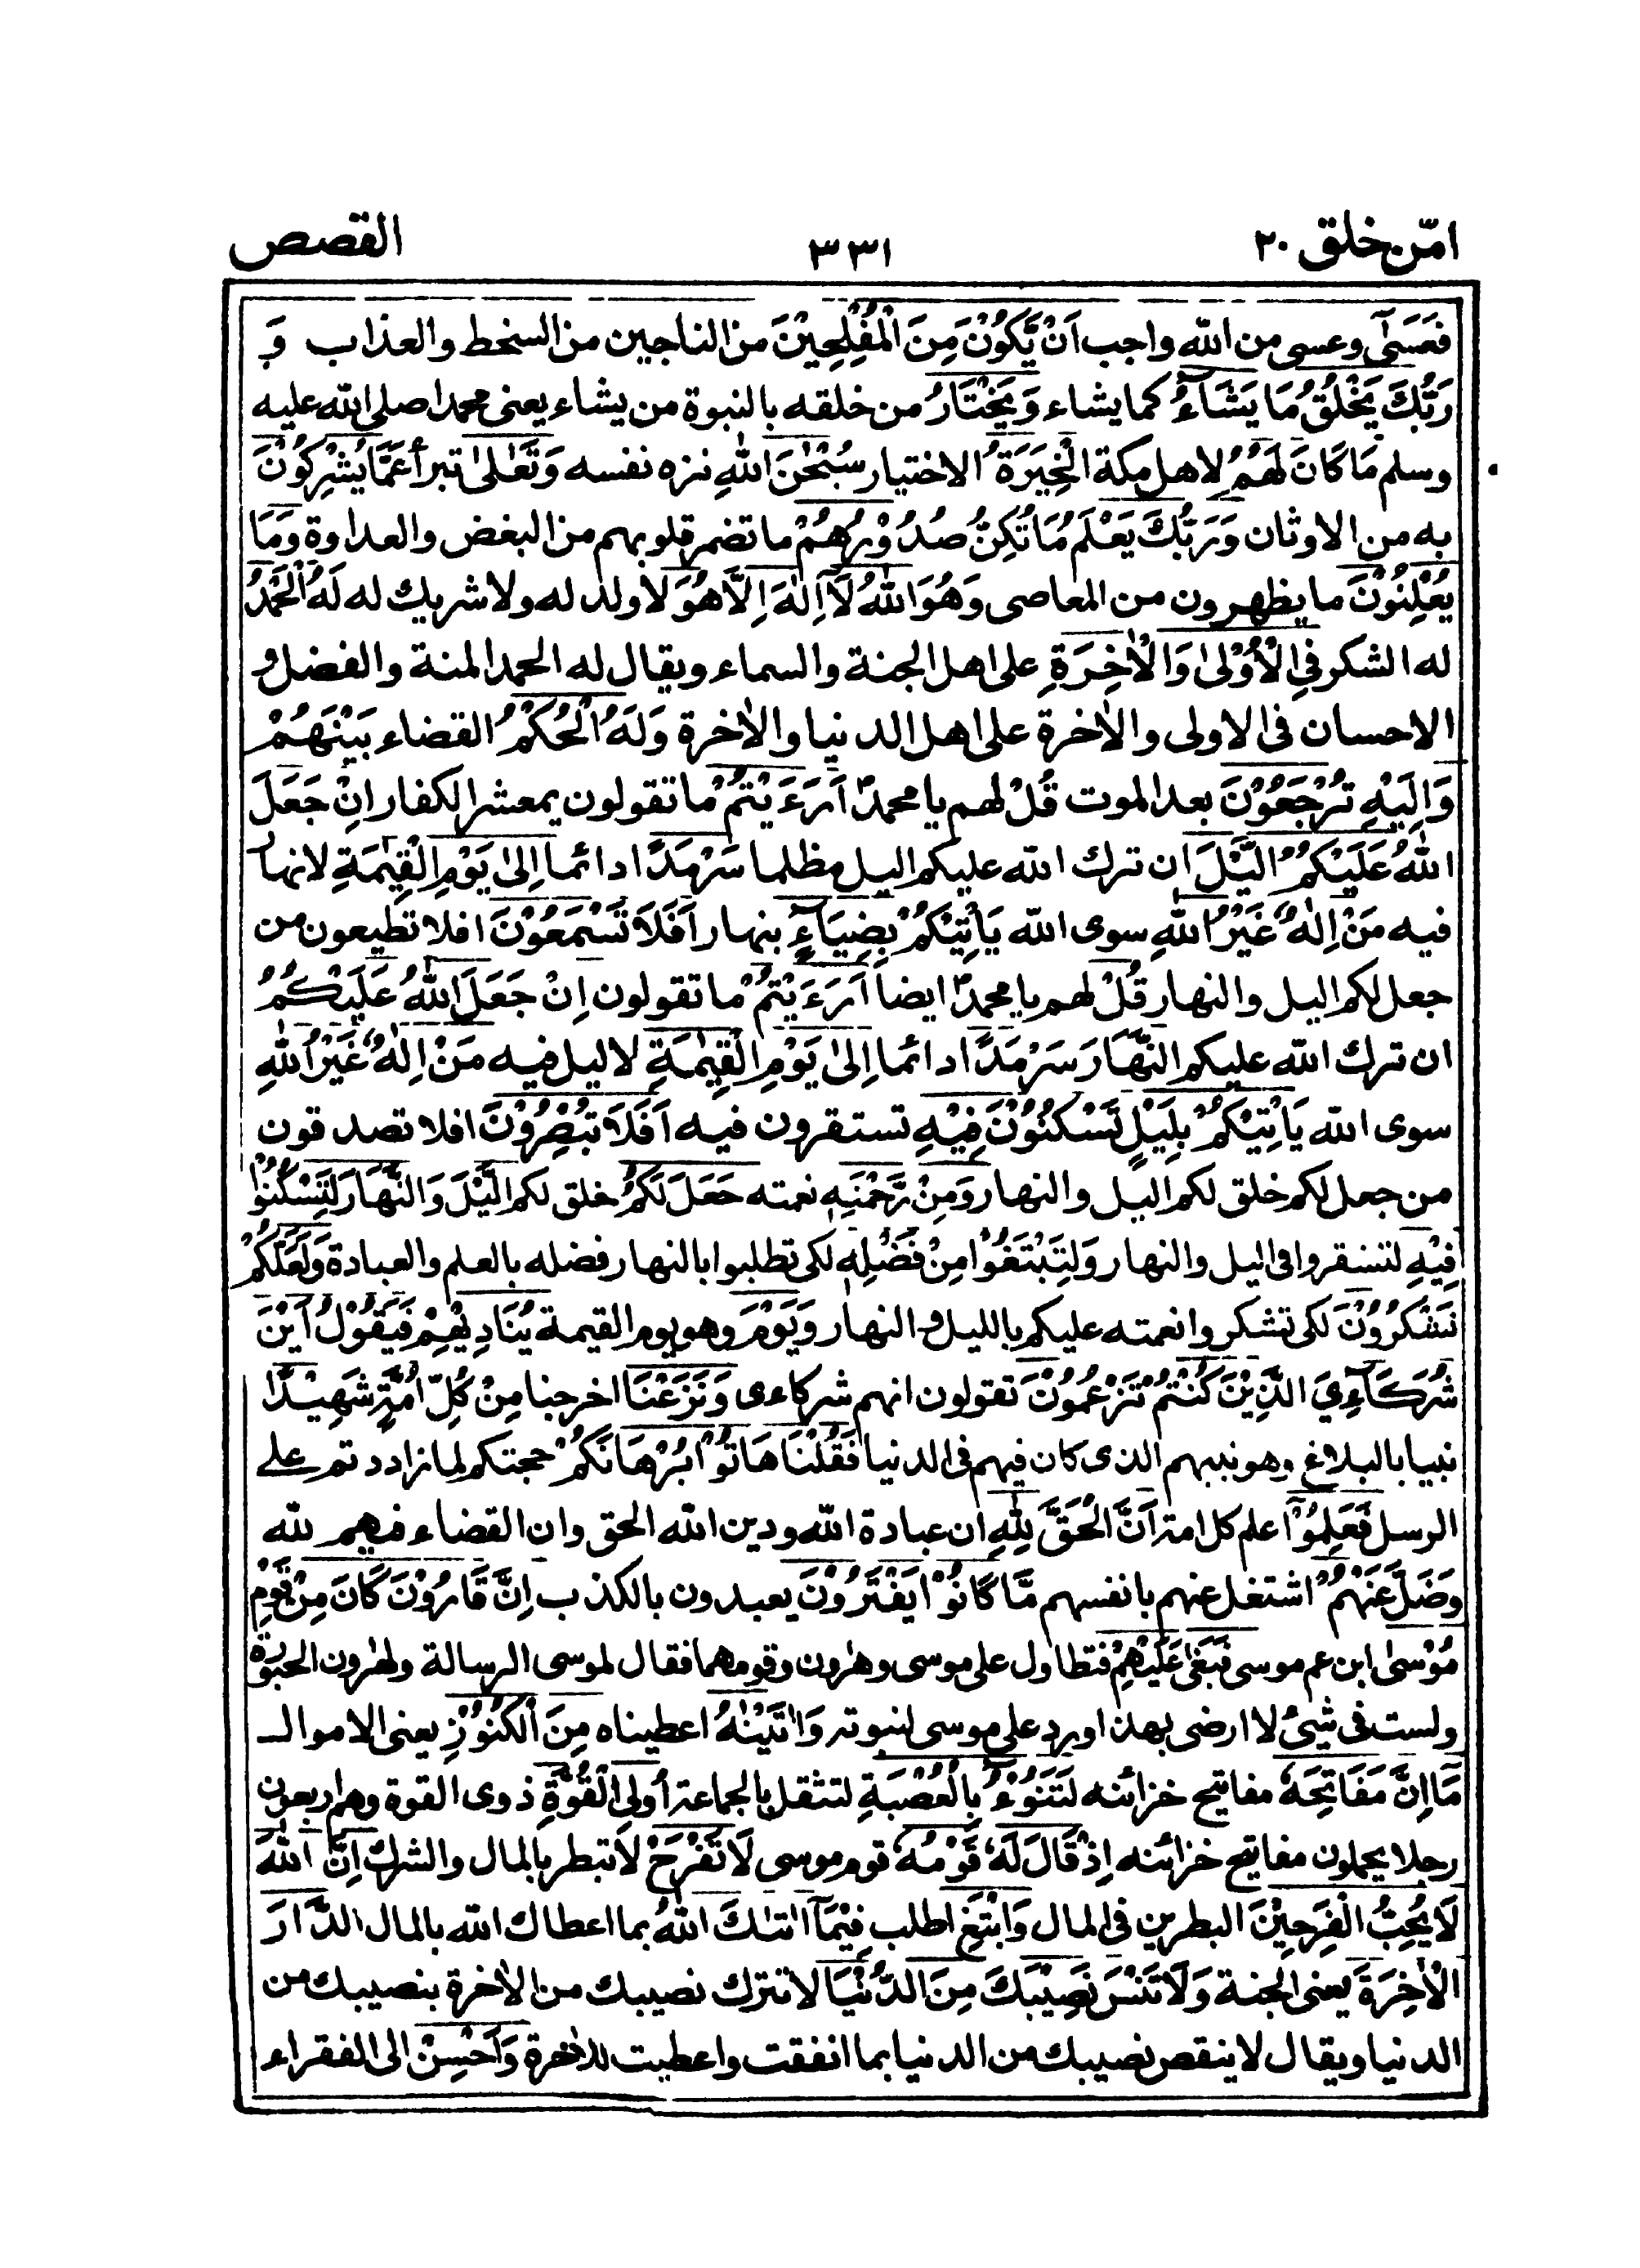 امّن خلق ٢٠
٣٣١
القصص
فَعَسٰٓى وعسى من الله واجب اَنْ يَّكُوْنَ مِنَ الْمُفْلِحِيْنَ من الناجين من السخط والعذاب وَ
رَبُّكَ يَخْلُقُ مَا يَشَآءُ كما يشاء وَيَخْتَارُ من خلقه بالنبوة من يشاء يعنى محمدا صلى الله عليه
وسلم مَا كَانَ لَهُمُ لاهل مكة الْخِيَرَةُ الاختيار سُبْحٰنَ اللهِ نزه نفسه وَتَعٰلٰى تبرأ عَمَّا يُشْرِكُوْنَ
به من الاوثان وَرَبُّكَ يَعْلَمُ مَا تُكِنُّ صُدُوْرُهُمْ ما تضمر قلوبهم من البغض والعداوة وَمَا
يُعْلِنُوْنَ ما يظهرون من المعاصى وَهُوَ اللهُ لَآ اِلٰهَ اِلَّا هُوَ لا ولد له ولا شريك له لَهُ الْحَمْدُ
له الشكر فِي الْاُوْلٰى وَالْاٰخِرَةِ على اهل الجنة والسماء ويقال له الحمد المنة والفضل و
الاحسان فى الاولى والاٰخرة على اهل الدنيا والاٰخرة وَلَهُ الْحُكْمُ القضاء بَيْنَهُمْ
وَاِلَيْهِ تُرْجَعُوْنَ بعد الموت قُلْ لهم يا محمد اَرَءَيْتُمْ ما تقولون يمعشر الكفار اِنْ جَعَلَ
اللهُ عَلَيْكُمُ الَّيْلَ ان ترك الله عليكم اليل مظلما سَرْمَدًا دائما اِلٰى يَوْمِ الْقِيٰمَةِ لا نهار
فيه مَنْ اِلٰهٌ غَيْرُ اللهِ سوى الله يَاْتِيْكُمْ بِضِيَآءٍ بنهار اَفَلَا تَسْمَعُوْنَ افلا تطيعون من
جعل لكم اليل والنهار قُلْ لهم يا محمد ايضا اَرَءَيْتُمْ ما تقولون اِنْ جَعَلَ اللهُ عَلَيْكُمُ
ان ترك الله عليكم النَّهَارَ سَرْمَدًا دائما اِلٰى يَوْمِ الْقِيٰمَةِ لا ليل فيه مَنْ اِلٰهٌ غَيْرُ اللهِ
سوى الله يَاْتِيْكُمْ بِلَيْلٍ تَسْكُنُوْنَ فِيْهِ تستقرون فيه اَفَلَا تُبْصِرُوْنَ افلا تصدقون
من جعل لكم خلق لكم اليل والنهار وَمِنْ رَّحْمَتِهٖ نعمته جَعَلَ لَكُمُ خلق لكم الَّيْلَ وَالنَّهَارَ لِتَسْكُنُوْا
فِيْهِ لتستقروا فى اليل والنهار وَلِتَبْتَغُوْا مِنْ فَضْلِهٖ لكى تطلبوا بالنهار فضله بالعلم والعبادة وَلَعَلَّكُمْ
تَشْكُرُوْنَ لكى تشكروا نعمته عليكم بالليل والنهار وَيَوْمَ وهو يوم القيمة يُنَادِيْهِمْ فَيَقُوْلُ اَيْنَ
شُرَكَآءِيَ الَّذِيْنَ كُنْتُمْ تَزْعُمُوْنَ تقولون انهم شركاءى وَنَزَعْنَا اخرجنا مِنْ كُلِّ اُمَّةٍ شَهِيْدًا
نبيا بالبلاغ وهو نبيهم الذى كان فيهم فى الدنيا فَقُلْنَا هَاتُوْا بُرْهَانَكُمْ حجتكم لما ذا رددتم على
الرسل فَعَلِمُوْٓا علم كل امة اَنَّ الْحَقَّ لِلّٰهِ ان عبادة الله ودين الله الحق وان القضاء فيهم لله
وَضَلَّ عَنْهُمْ اشتغل عنهم بانفسهم مَّا كَانُوْا يَفْتَرُوْنَ يعبدون بالكذب اِنَّ قَارُوْنَ كَانَ مِنْ قَوْمِ
مُوْسٰى ابن عم موسى فَبَغٰى عَلَيْهِمْ فتطاول على موسى وهٰرون وقومهما فقال لموسى الرسالة ولهٰرون الحبورة
ولست فى شئ لا ارضى بهذا ورد على موسى لنبوته وَاٰتَيْنٰهُ اعطيناه مِنَ الْكُنُوْزِ يعنى الاموال
مَآ اِنَّ مَفَاتِحَهٗ مفاتيح خزائنه لَتَنُوْٓءُ بِالْعُصْبَةِ لتثقل بالجماعة اُولِى الْقُوَّةِ ذوى القوة وهم اربعون
رجلا يحملون مفاتيح خزائنه اِذْ قَالَ لَهٗ قَوْمُهٗ قوم موسى لَا تَفْرَحْ لا تبطر بالمال والشرك اِنَّ اللهَ
لَا يُحِبُّ الْفَرِحِيْنَ البطرين فى المال وَابْتَغِ اطلب فِيْمَآ اٰتٰىكَ اللهُ بما اعطاك الله بالمال الدَّارَ
الْاٰخِرَةَ يعنى الجنة وَلَا تَنْسَ نَصِيْبَكَ مِنَ الدُّنْيَا لا تترك نصيبك من الاٰخرة بنصيبك من
الدنيا ويقال لا ينقص نصيبك من الدنيا بما انفقت واعطيت للاٰخرة وَاَحْسِنْ الى الفقراء